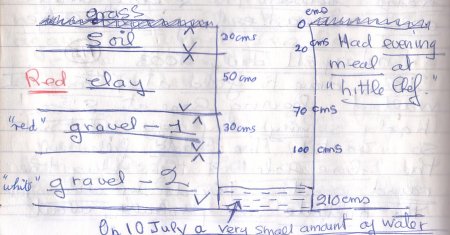 grass
cms
0
Soil
20 cms
20 cms
Had evening
meal at
"Little Chef."
Red clay
50 cms
70 cms
"red" gravel - 1
30 cms
100 cms
"white" gravel - 2
210 cms
On 10 July a very small amount of water